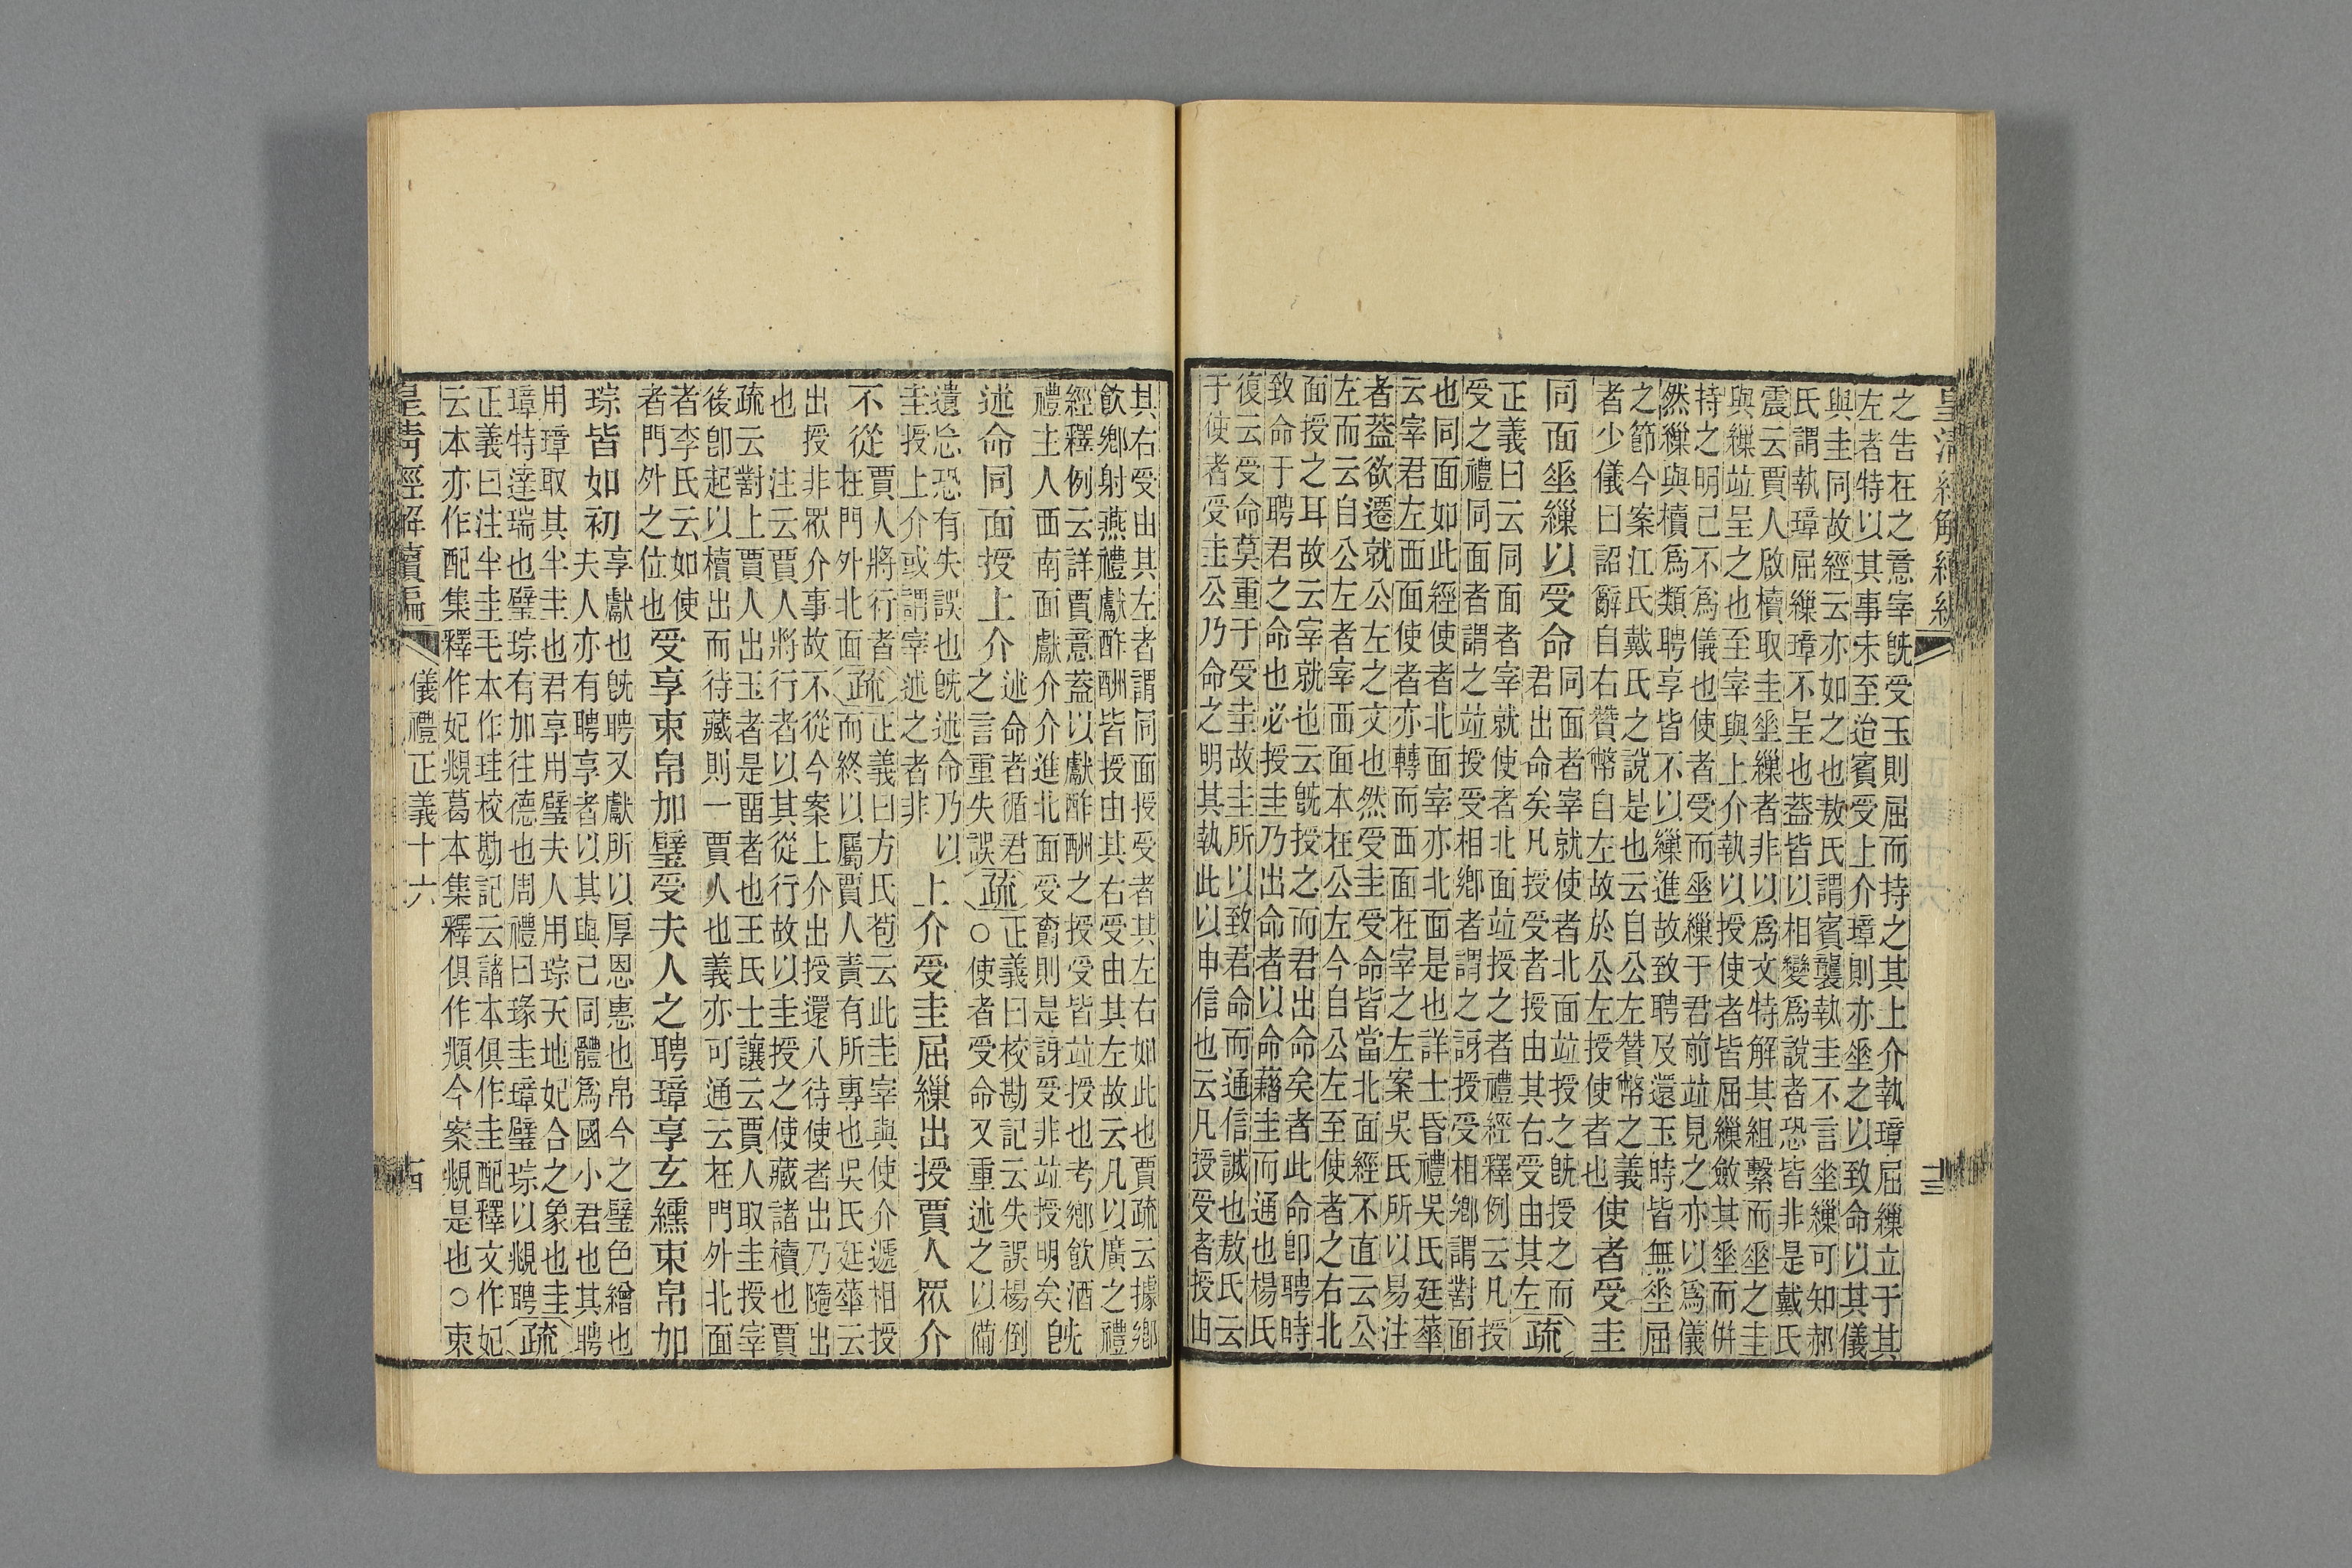 之告在之意宰旣受玉則屈而持之其上介執璋屈繅立于其
左者特以其事未至迨賓受上介璋則亦垂之以致命以其儀
與圭同故經云亦如之也敖氏謂賓襲執圭不言垂繅可知郝
氏謂執璋屈繅璋不呈也葢皆以相變爲說者恐皆非是戴氏
震云賈人啟櫝取圭垂繅者非以爲文特解其組繫而垂之圭
與繅竝呈之也至宰與上介執以授使者皆屈繅斂其垂而倂
持之明己不爲儀也使者受而垂繅于君前竝見之亦以爲儀
然繅與櫝爲類聘享皆不以繅進故致聘及還玉時皆無垂屈
之節今案江氏戴氏之說是也云自公左贊幣之義
者少儀曰詔辭自右贊幣自左故於公左授使者也
使者受圭
同面垂繅以受命
同面者宰就使者北面竝授之旣授之而
君出命矣凡授受者授由其右受由其左
疏
正義曰云同面者宰就使者北面竝授之者禮經釋例云凡授
受之禮同面者謂之竝授受相鄉者謂之訝授受相鄉謂對面
也同面如此經使者北面宰亦北面是也詳士昏禮吳氏廷華
云宰君左西面使者亦轉而西面在宰之左案吳氏所以易注
者葢欲遷就公左之文也然受圭受命皆當北面經不直云公
左而云自公左者宰西面本在公左今自公左至使者之右北
面授之耳故云宰就也云旣授之而君出命矣者此命卽聘時
致命于聘君之命也必授圭乃出命者以命藉圭而通也楊氏
復云受命莫重于受圭故圭所以致君命而通信誠也敖氏云
于使者受圭公乃命之明其執此以申信也云凡授受者授由
其右受由其左者謂同面授受者其左右如此也賈疏云據鄉
飲鄉射燕禮獻酢酬皆授由其右受由其左故云凡以廣之禮
經釋例云詳賈意葢以獻酢酬之授受皆竝授也考鄉飲酒先
禮主人西南面獻介介進北面受爵則是訝受非竝授明矣旣
述命同面授上介
述命者循君
之言重失誤
疏
正義曰校勘記云失誤楊倒
○使者受命又重述之以備
遺忘恐有失誤也旣述命乃以
圭授上介或謂宰述之者非
上介受圭屈繅出授賈人眾介
不從
賈人將行者
在門外北面
疏
正義曰方氏苞云此圭宰與使介遞相授
而終以屬賈人責有所專也吳氏廷華云
出授非眾介事故不從今案上介出授還入待使者出乃隨出
也 注云賈人將行者以其從行故以圭授之使藏諸櫝也賈
疏云對上賈人出玉者是畱者也王氏士讓云賈人取圭授宰
後卽起以櫝出而待藏則一賈人也義亦可通云在門外北面
者李氏云如使
者門外之位也
受享束帛加璧受夫人之聘璋享玄纁束帛加
琮皆如初
享獻也旣聘又獻所以厚恩惠也帛今之璧色繒也
夫人亦有聘享者以其與己同體爲國小君也其聘
用璋取其半圭也君享用璧夫人用琮天地妃合之象也圭
璋特達瑞也璧琮有加往德也周禮曰瑑圭璋璧琮以覜聘
疏
正義曰注半圭毛本作珪校勘記云諸本俱作圭配釋文作妃
云本亦作配集釋作妃覜葛本集釋俱作頫今案覜是也○束
皇清經解續編
儀禮正義十六